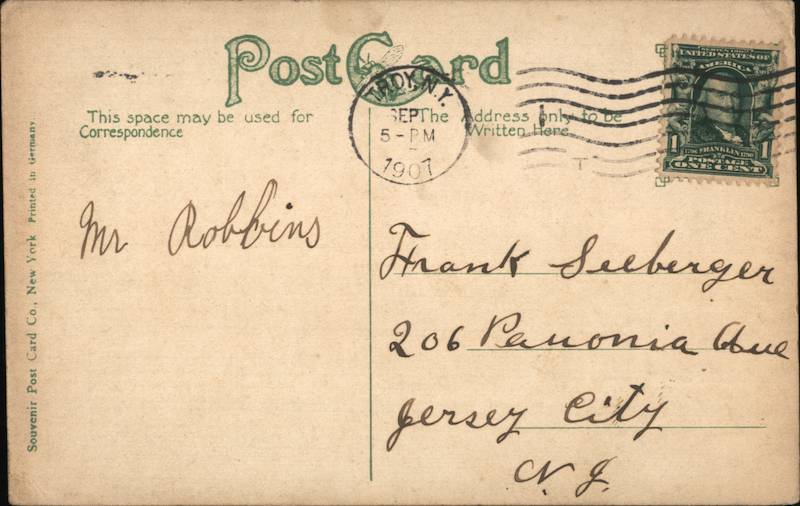 Post Card
This space may be used for
Correspondence
The Address only to be
Written Here
TROY, N.Y.
SEP
5 - PM
1907
SERIES 1902
UNITED STATES OF
AMERICA
1 FRANKLIN 1
POSTAGE
ONE CENT
Mr Robbins
Frank Seeberger
206 Panonia Ave
Jersey City
N. J.
Souvenir Post Card Co., New York Printed in Germany.